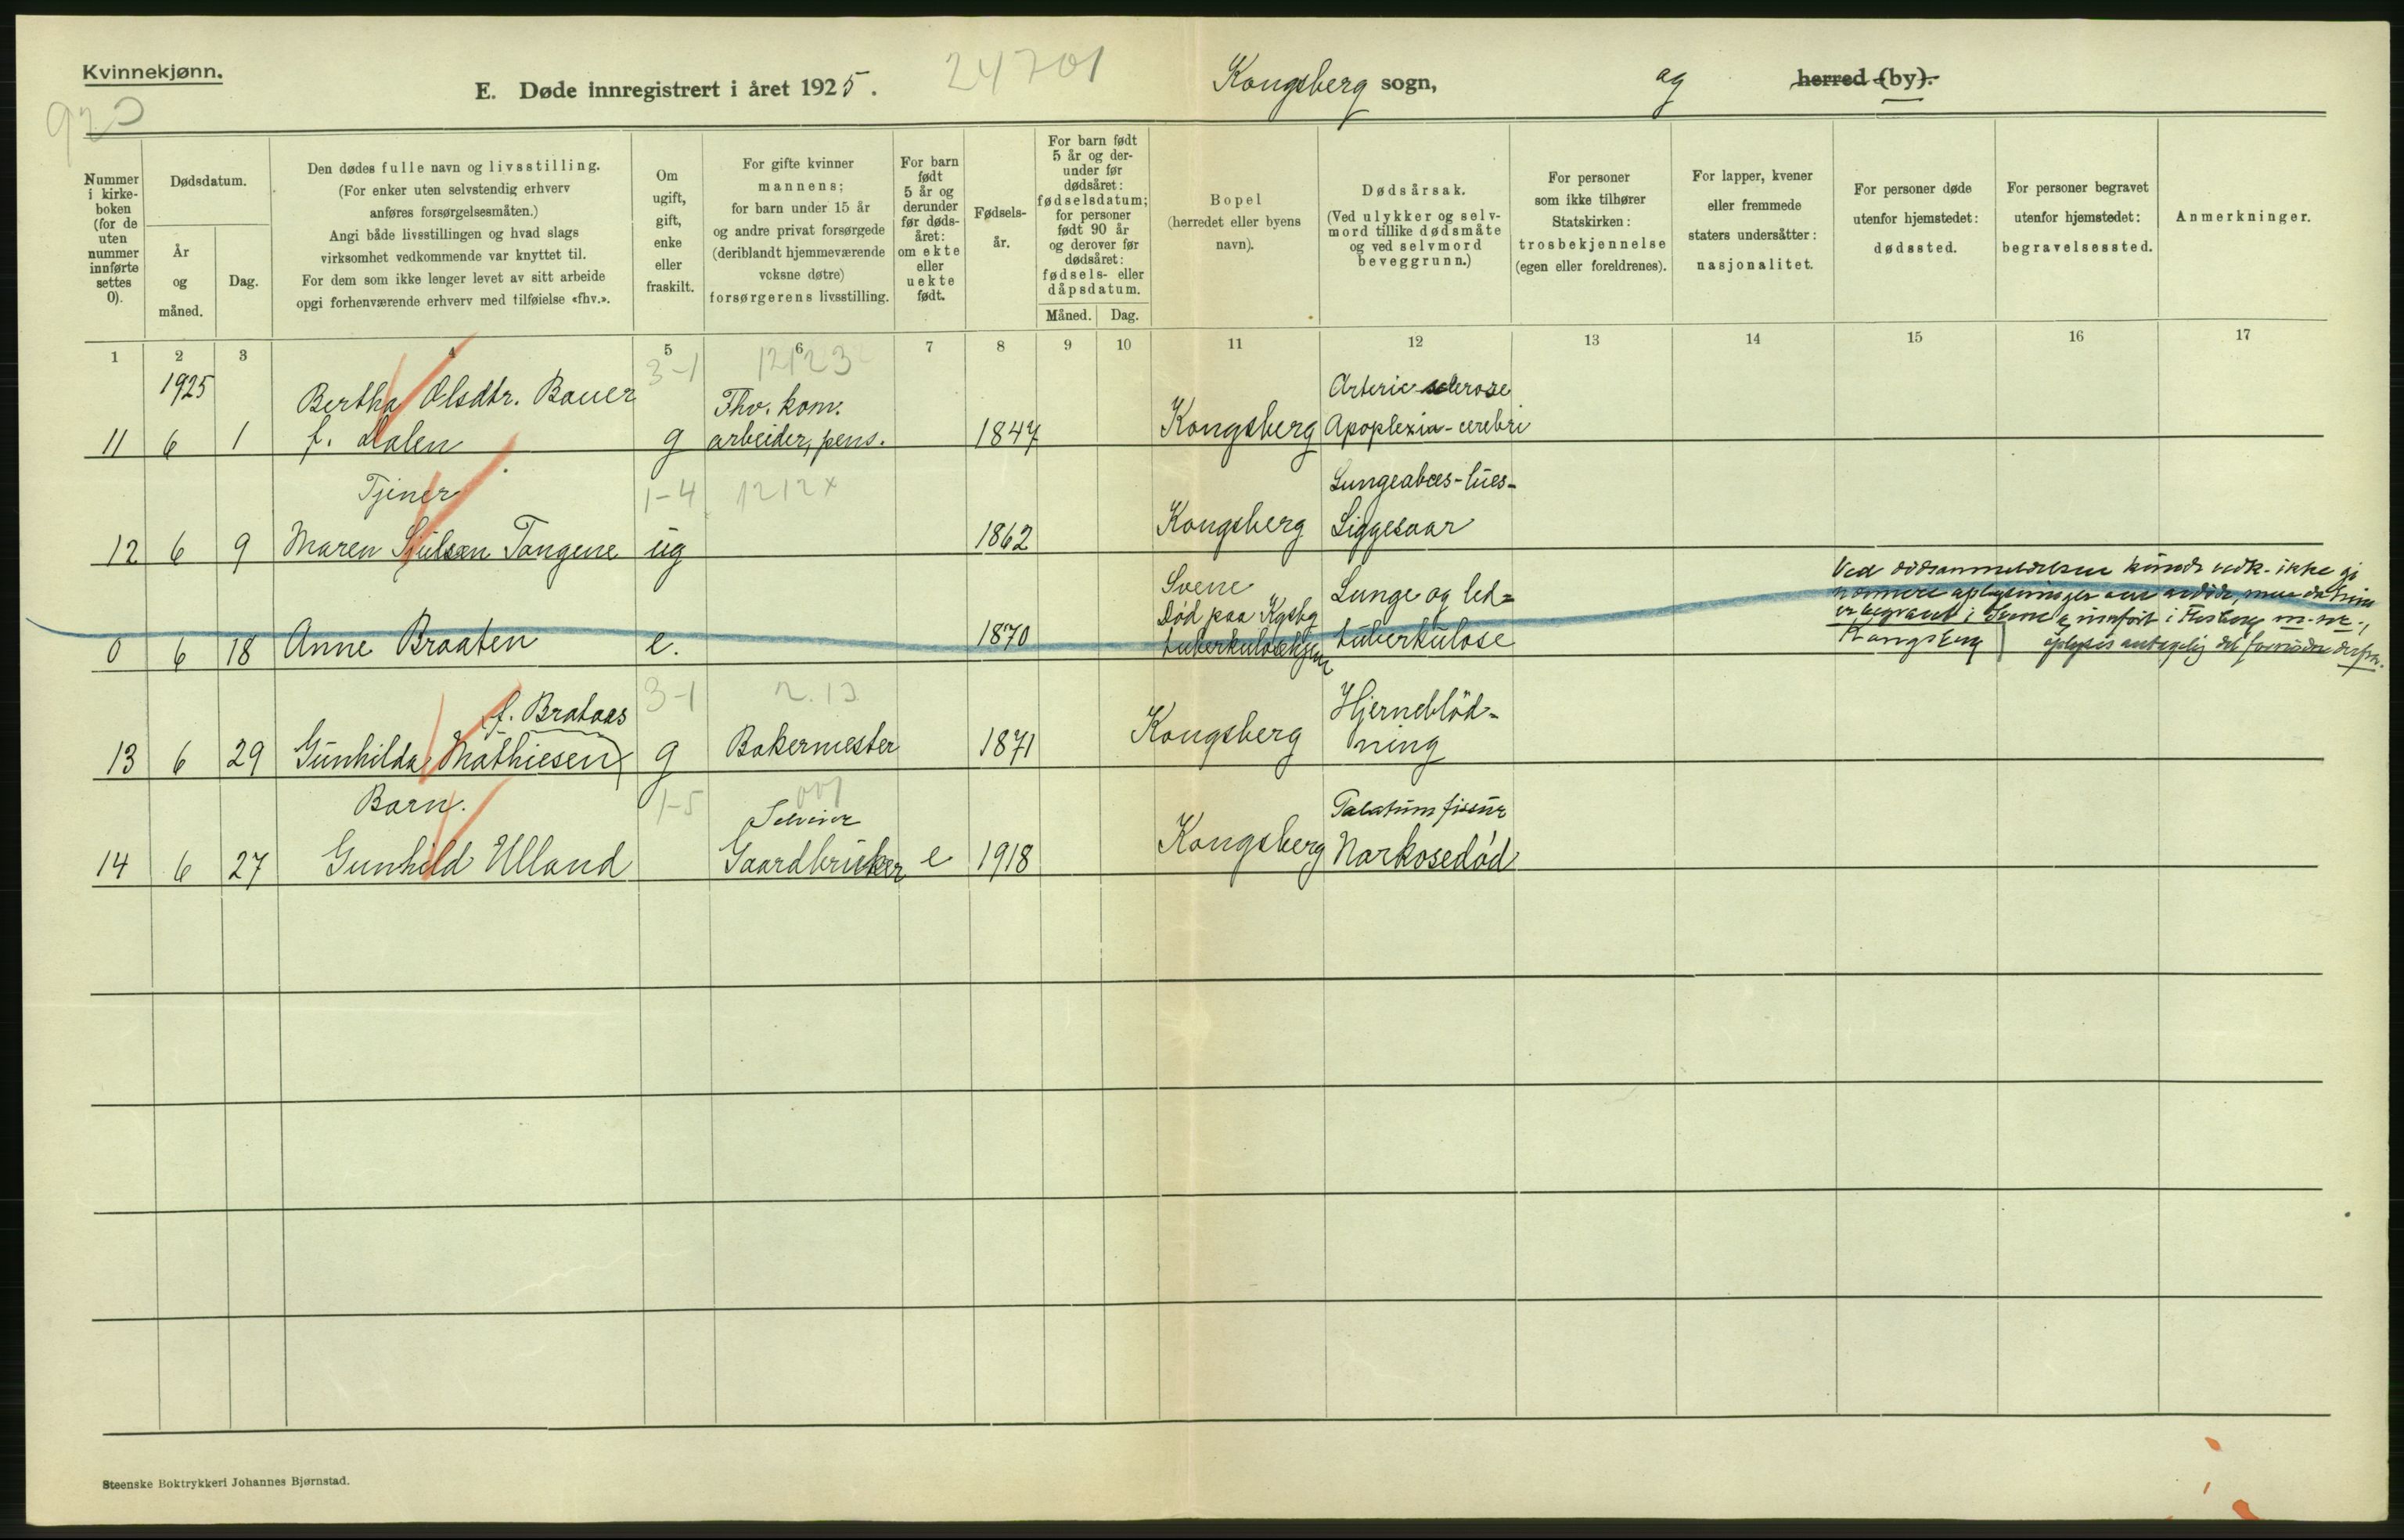 Kvinnekjønn.
E. Døde innregistrert i året 1925.
24701
Kongsberg sogn,
og
herred (by).
920
Nummer i kirke-boken (for de uten nummer innførte settes 0).
Dødsdatum.
År og måned.
Dag.
Den dødes fulle navn og livsstilling.
(For enker uten selvstendig erhverv
anføres forsørgelsesmåten.)
Angi både livsstillingen og hvad slags
virksomhet vedkommende var knyttet til.
For dem som ikke lenger levet av sitt arbeide
opgi forhenværende erhverv med tilføielse «fhv.».
Om ugift, gift, enke eller fraskilt.
For gifte kvinner
mannens;
for barn under 15 år
og andre privat forsørgede
(deriblandt hjemmeværende
voksne døtre)
forsørgerens livsstilling.
For barn født 5 år og derunder før døds-året: om ekte eller uekte født.
Fødsels-år.
For barn født 5 år og der-under før dødsåret: fødselsdatum; for personer født 90 år og derover før dødsåret: fødsels- eller dåpsdatum.
Måned.
Dag.
Bopel
(herredet eller byens
navn).
Dødsårsak.
(Ved ulykker og selv-
mord tillike dødsmåte
og ved selvmord
beveggrunn.)
For personer
som ikke tilhører
Statskirken:
trosbekjennelse
(egen eller foreldrenes).
For lapper, kvener
eller fremmede
staters undersåtter:
nasjonalitet.
For personer døde
utenfor hjemstedet:
dødssted.
For personer begravet
utenfor hjemstedet:
begravelsessted.
Anmerkninger.
1 2 3 4 5 6 7 8 9 10 11 12 13 14 15 16 17
1925 Bertha Olsdtr. Bauer 3-1 12123 Arterie sclerose
11 6 1 f. Dalen g Fhv. kom. arbeider, pens. 1847 Kongsberg Apoplexia-cerebri
Tjener 1-4 1212x Lungeabces-lues-
12 6 9 Maren Tangene ug 1862 Kongsberg Liggesaar
Svene Lunge og led-
Død paa Kgsbg
0 6 18 Anne Braaten e. 1870 tuberkulosehjem tuberkulose
Ved dödsanmeldelsen kunde vedk. ikke gi
nærmere oplysninger om avdöde, men da hun
er begravet i Svene & innfört i Flesberg
Kongsberg
f. Brataas 3-1 Hjerneblöd-
13 6 29 Gunhilda Mathiesen g Bakermester 1871 Kongsberg ning
Barn. 1-5 001 Palatum fissur
14 6 27 Gunhild Ulland Selveier Gaardbruker e 1918 Kongsberg Narkosedöd
Steenske Boktrykkeri Johannes Bjørnstad.